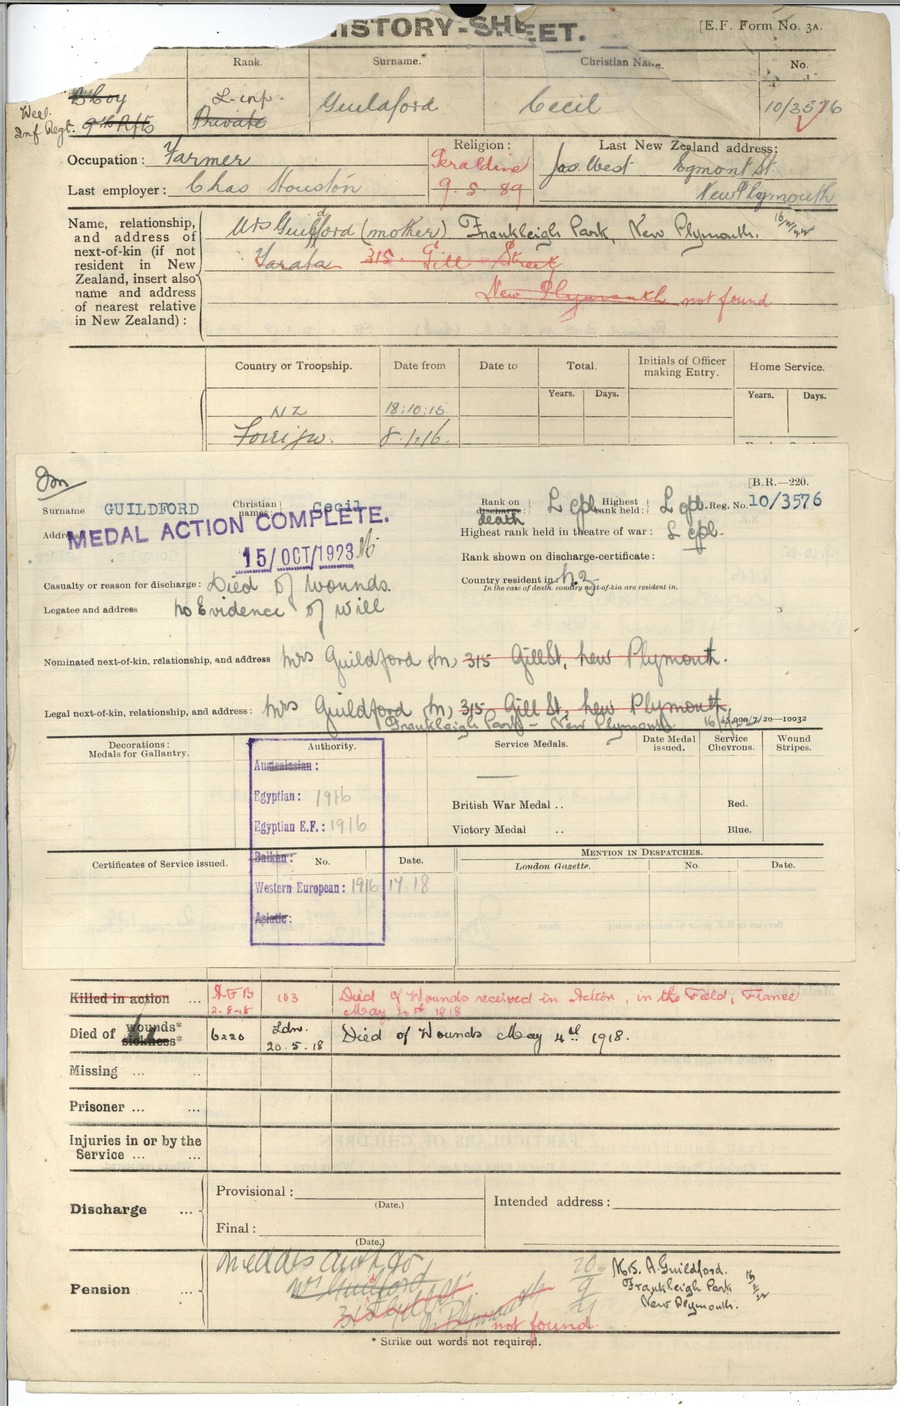 HISTORY-SHEET.
[E.F. Form No. 3A.
Rank. Surname. Christian Name. No.
B Coy L-cpl. Guildford Cecil 10/3576
Well. Inf Regt. 9th Rfts Private
Occupation: Farmer Religion: Last New Zealand address:
Geraldine Jas. West Egmont St.
Last employer: Chas Houston 9.5.89 New Plymouth
Name, relationship, and address of next-of-kin (if not resident in New Zealand, insert also name and address of nearest relative in New Zealand):
Mrs Guildford (mother) Frankleigh Park, New Plymouth.
Tarata 315 Gill Street
New Plymouth not found
Country or Troopship. Date from Date to Total. Initials of Officer making Entry. Home Service.
Years. Days. Years. Days.
NZ 18.10.15
Foreign. 8.1.16.
[B.R.—220.
Surname GUILDFORD Christian names: Cecil Rank on discharge: death L Cpl Highest rank held: L Cpl. Reg. No. 10/3576
Address
MEDAL ACTION COMPLETE.
15/OCT/1923
Highest rank held in theatre of war: L Cpl.
Rank shown on discharge-certificate:
Casualty or reason for discharge: Died of wounds.
Country resident in: NZ
In the case of death, country next-of-kin are resident in.
Legatee and address no Evidence of will
Nominated next-of-kin, relationship, and address Mrs Guildford (M) 315 Gill St, New Plymouth.
Legal next-of-kin, relationship, and address: Mrs Guildford (M) 315 Gill St, New Plymouth.
Frankleigh Park – New Plymouth. 000/7/20—10032
Decorations: Medals for Gallantry. Authority. Service Medals. Date Medal issued. Service Chevrons. Wound Stripes.
Australasian:
Egyptian: 1916
British War Medal .. Red.
Egyptian E.F.: 1916
Victory Medal .. Blue.
Certificates of Service issued. Balkan: No. Date. MENTION IN DESPATCHES.
London Gazette. No. Date.
Western European: 1916.17.18
Asiatic:
Killed in action ... NEB 103 Died of Wounds received in Action, in the Field, France
2-8-18 May 4th 1918
Died of wounds* sickness* 6220 Ldn. 20.5.18 Died of Wounds May 4th 1918.
Missing ... ..
Prisoner ... ...
Injuries in or by the Service ... ...
Discharge ... Provisional: (Date.) Intended address:
Final: (Date.)
Pension ... Medals auth to
Mrs Guildford
315 Gill St.
N. Plymouth
not found.
20/9/21
Mrs. A. Guildford.
Frankleigh Park
New Plymouth.
* Strike out words not required.